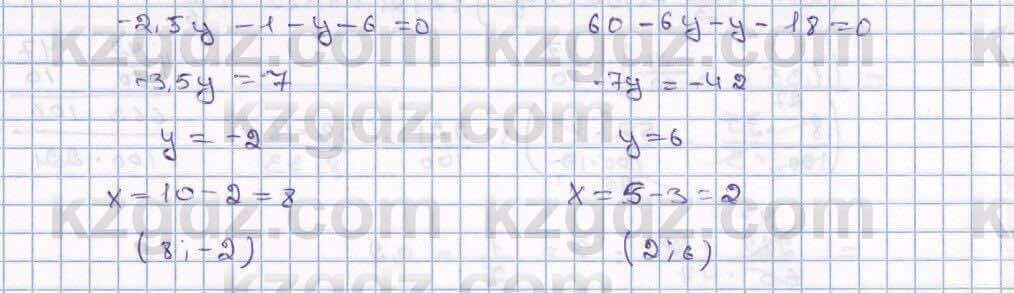 -2,5y - 1 - y - 6 = 0
-3,5y = 7
y = -2
x = 10 - 2 = 8
(8; -2)
60 - 6y - y - 18 = 0
-7y = -42
y = 6
x = 5 - 3 = 2
(2; 6)
kzgdz.com
kzgdz.com
kzgdz.com
kzgdz.com
kzgdz.com